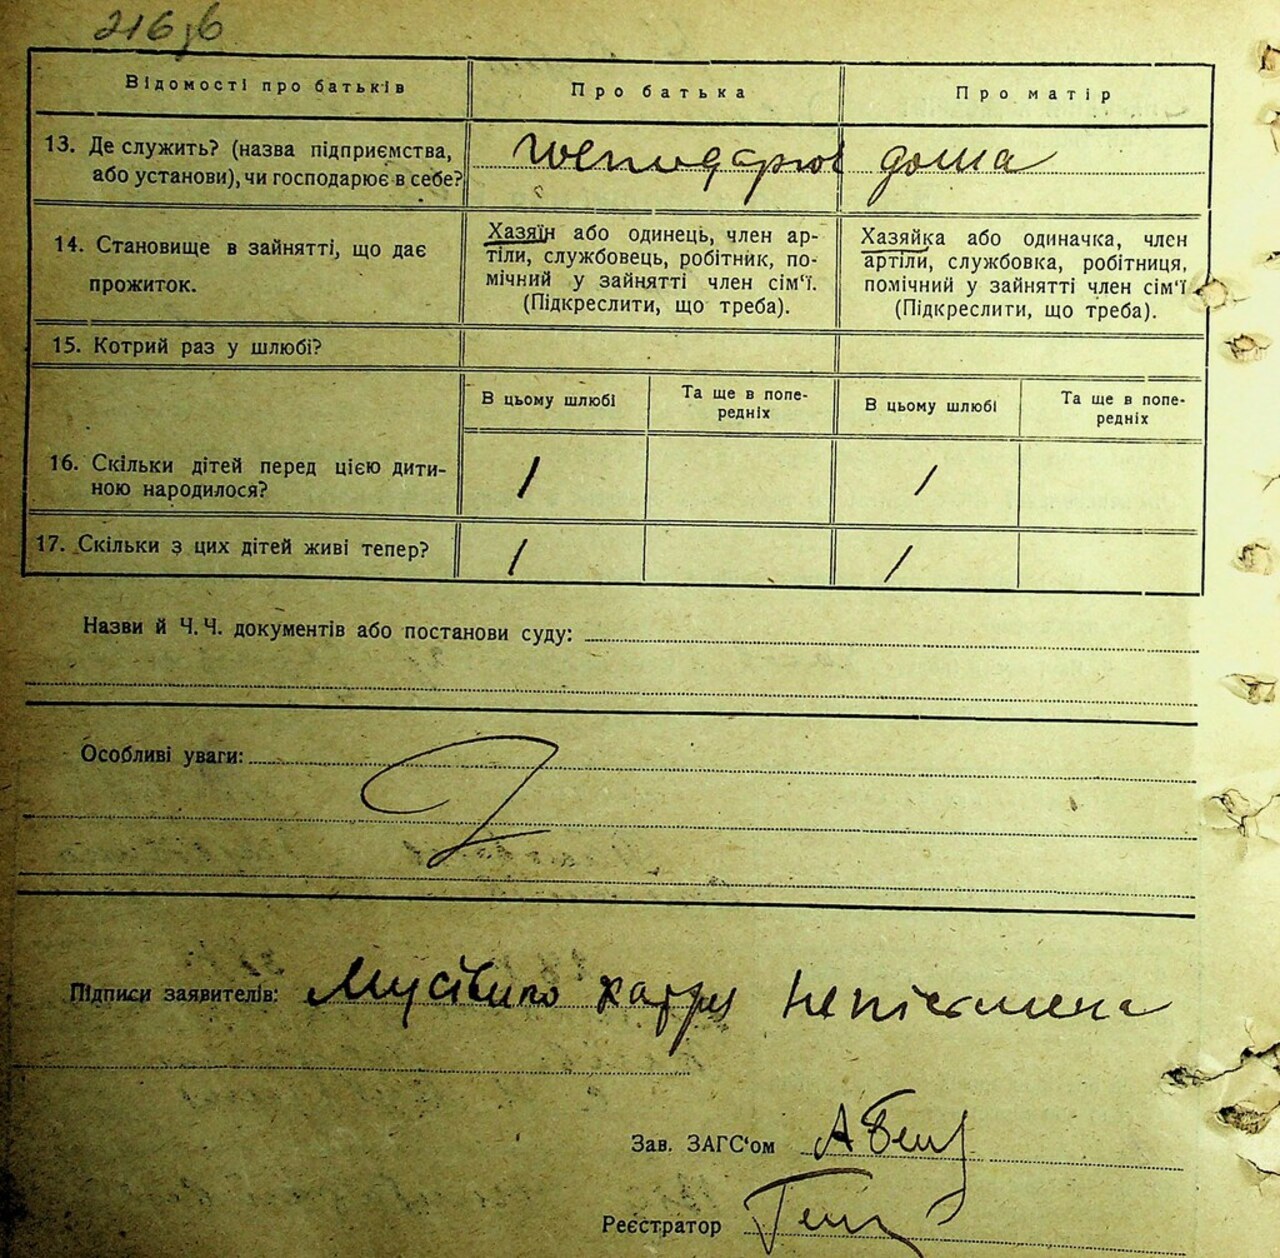 216
Відомості про батьків
Про батька
Про матір
13. Де служить? (назва підприємства,
або установи), чи господарює в себе?
дома
14. Становище в зайнятті, що дає
прожиток.
Хазяїн або одинець, член ар-
тіли, службовець, робітник, по-
мічний у зайнятті член сім‘ї.
(Підкреслити, що треба).
Хазяйка або одиначка, член
артіли, службовка, робітниця,
помічний у зайнятті член сім‘ї
(Підкреслити, що треба).
15. Котрий раз у шлюбі?
В цьому шлюбі
Та ще в попе-
редніх
В цьому шлюбі
Та ще в попе-
редніх
16. Скільки дітей перед цією дити-
ною народилося?
/
/
17. Скільки з цих дітей живі тепер?
/
/
Назви й Ч. Ч. документів або постанови суду:
Особливі уваги:
Підписи заявителів: неписьмена
Зав. ЗАГС‘ом
Реєстратор